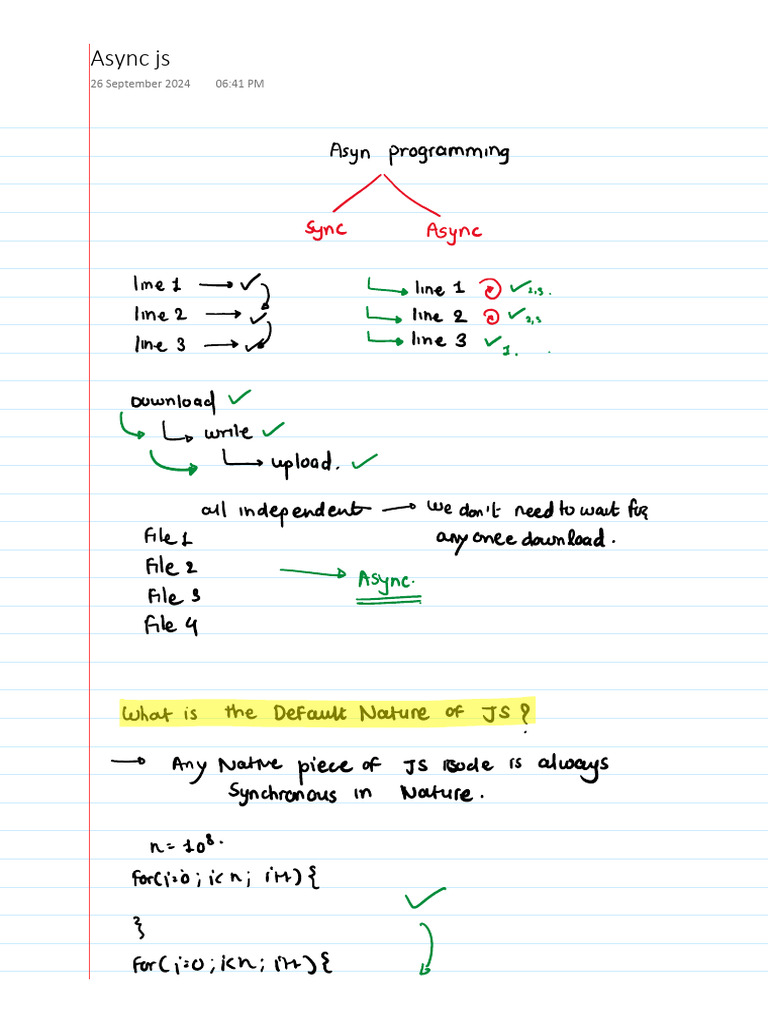 Async js
26 September 2024 06:41 PM
Asyn programming
Sync Async
line 1 line 1 2,3.
line 2 line 2
line 3 line 3 1.
Download
write
upload.
all independent we don't need to wait for
File 1 any once download.
File 2
Async.
File 3
File 4
What is the Default Nature of JS?
Any Native piece of JS code is always
Synchronous in Nature.
n = 10⁸.
for(i=0; i<n; i++){
}
for(i=0; i<n; i++){